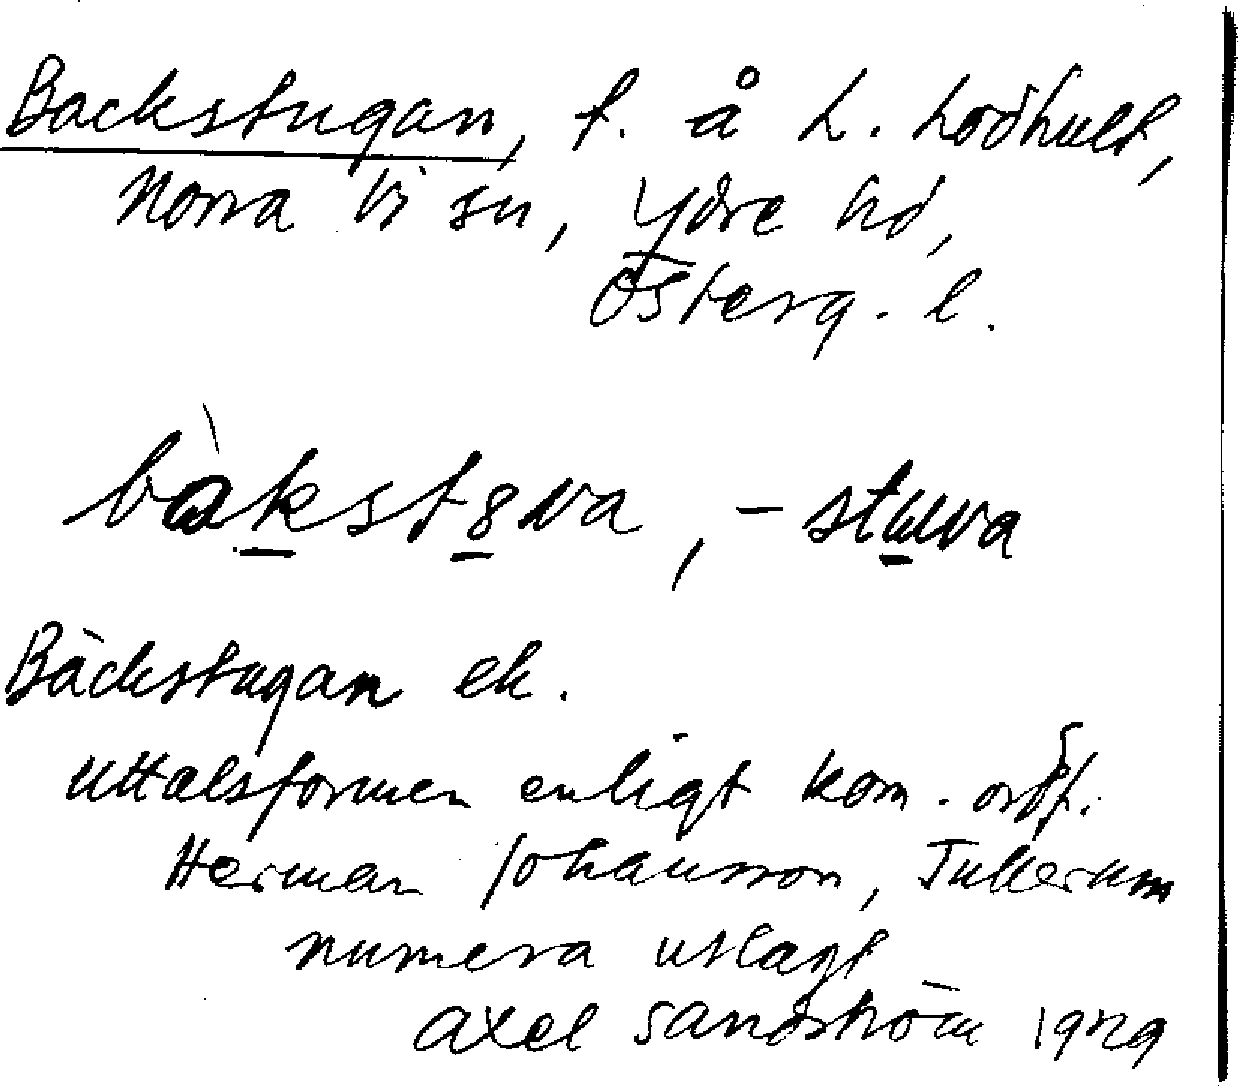 Backstugan, t. å L. Lodhult,
Norra Vi sn, Ydre hd,
Österg. l.
bàkstova, -stuva
Bäckstugan ek.
Uttalsformen enligt kom. ordf.
Herman Johansson, Tullerum
numera utlagt
Axel Sandström 1929